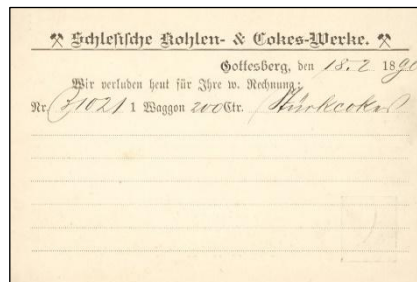 ⚒ Schlesische Kohlen- & Cokes-Werke. ⚒
Gottesberg, den 18.2 1890
Wir verluden heut für Ihre w. Rechnung:
Nr. 31021 1 Waggon 200 Ctr. Stückcokes